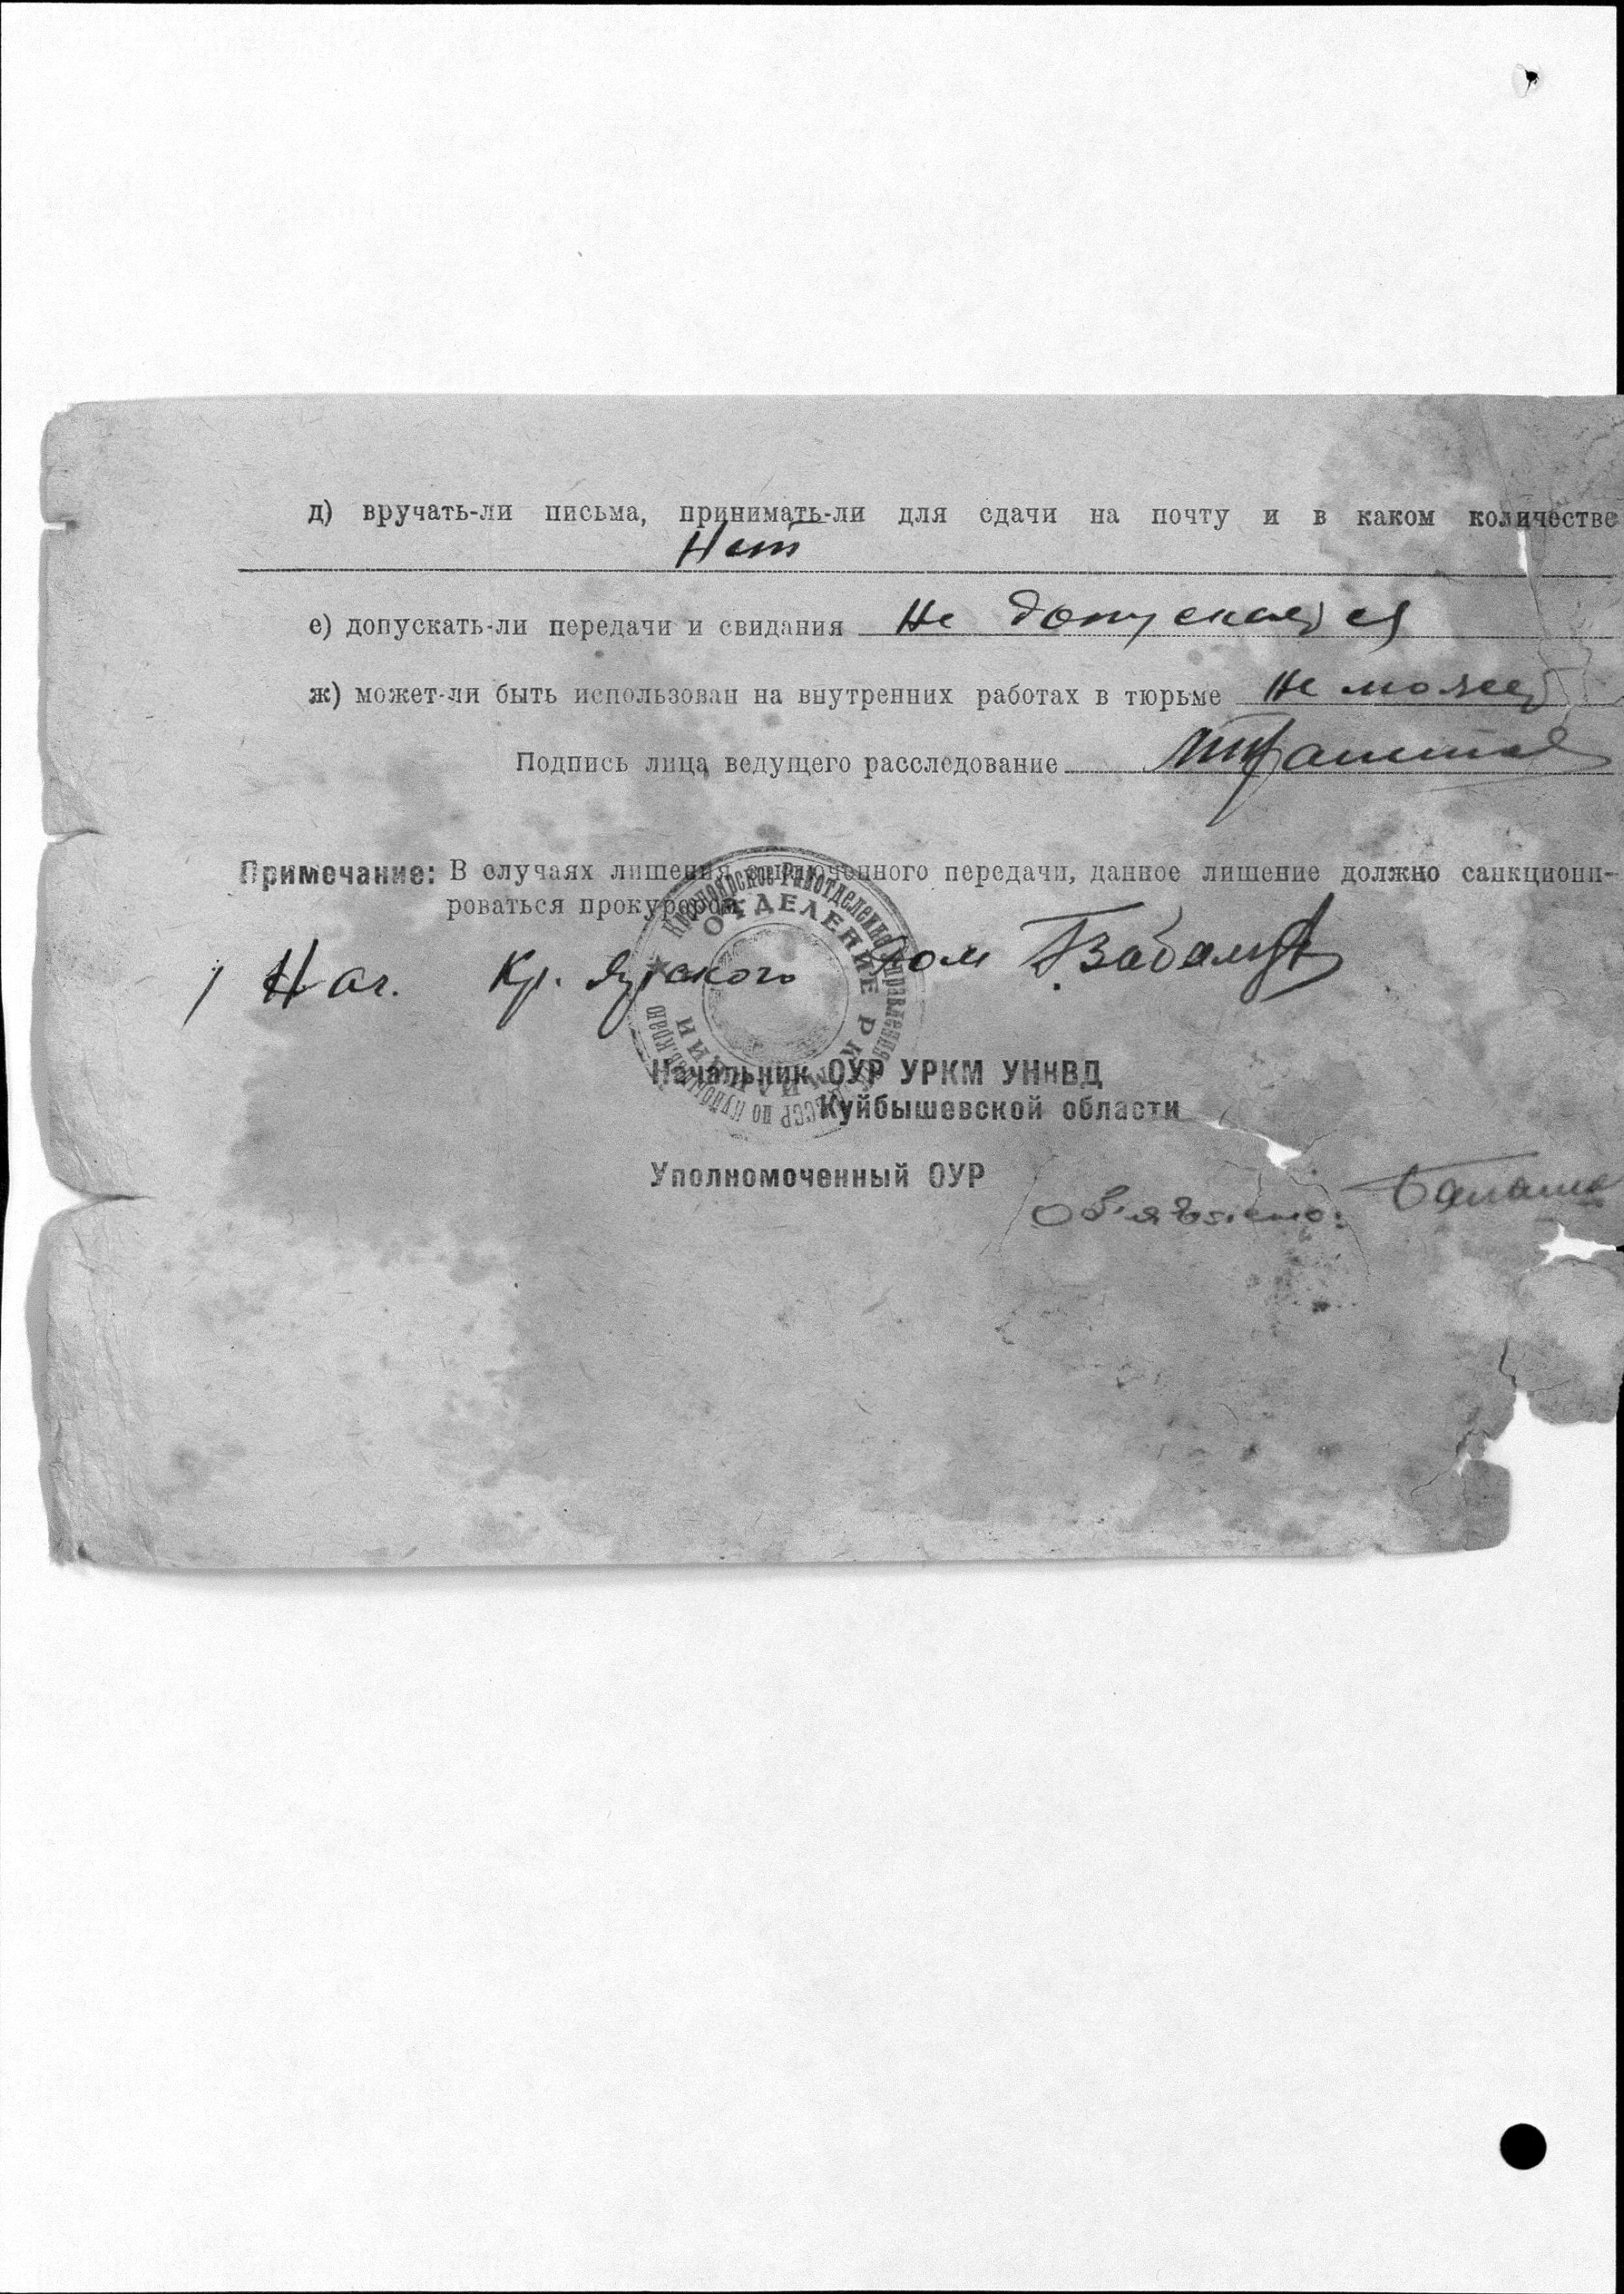 д) вручать-ли письма, принимать-ли для сдачи на почту и в каком количестве
Нет
е) допускать-ли передачи и свидания Не допускается
ж) может-ли быть использован на внутренних работах в тюрьме Не может
Подпись лица ведущего расследование
Примечание: В случаях лишения заключенного передачи, данное лишение должно санкциони-
роваться прокурором
Нач. Кр. Ярского ром
ОТДЕЛЕНИЕ РК МИЛИЦИИ
Начальник ОУР УРКМ УНКВД
Куйбышевской области
Уполномоченный ОУР
Об'явлено: